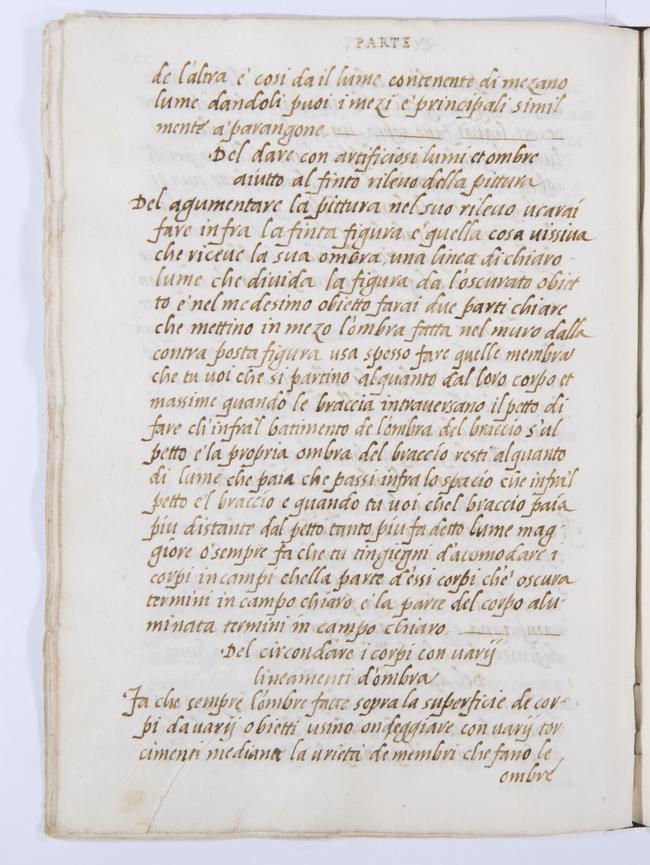 PARTE
de l'altra e' cosi da il lume contenente di mezano
lume dandoli puoi i mezi e' principali simil
mente a' parangone
Del dare con artificiosi lumi et ombre
aiutto al finto rilevo della pittura
Del agumentare la pittura nel suo rilevo usarai
fare infra la finta figura e' quella cosa vissiva
che riceve la sua ombra, una linea di chiaro
lume che divida la figura da l'oscurato obiet
to e' nel medesimo obietto farai due parti chiare
che mettino in mezo l'ombra fatta nel muro dalla
contra posta figura usa spesso fare quelle membra
che tu voi che si partino alquanto dal loro corpo et
massime quando le braccia intraversano il petto di
fare ch'infra'l batimento de l'ombra del braccio s'ul
petto e' la propria ombra del braccio resti alquanto
di lume che paia che passi infra lo spacio che infra'l
petto e'l braccio e quando tu voi che'l braccio paia
piu distante dal petto tanto piu fa detto lume mag-
giore o' sempre fa che tu t'ingiegni d'acomodare i
corpi in campi chella parte d'essi corpi ch'e' oscura
termini in campo chiaro e' la parte del corpo alu-
minata termini in campo chiaro
Del circondare i corpi con varij
lineamenti d'ombra
Fa che sempre l'ombre fatte sopra la superficie de cor-
pi da varij obietti, usino ondeggiare con varij tor
cimenti mediante la urieta de membri che fano le
ombre